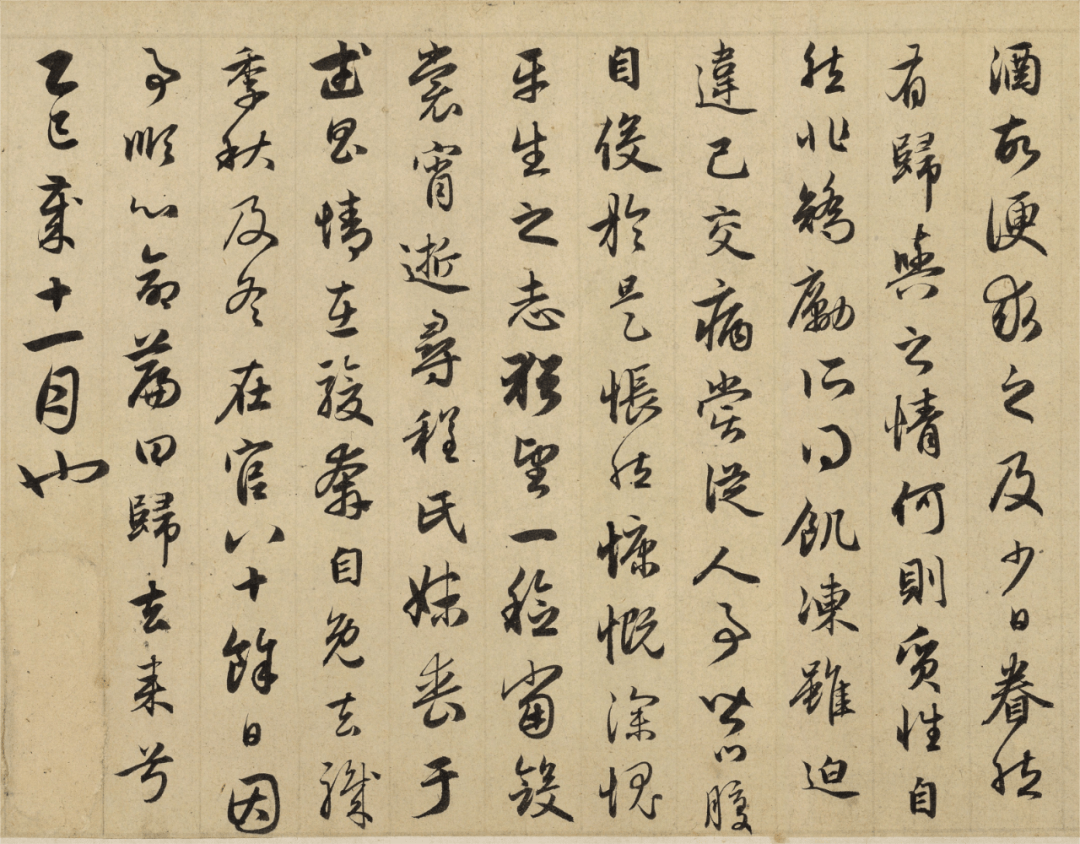 酒故便求之及少日眷然
有歸歟之情何則質性自
然非矯勵所得飢凍雖迫
違己交病嘗從人事皆口腹
自役於是悵然慷慨深愧
平生之志猶望一稔當斂
裳宵逝尋程氏妹喪于
武昌情在駿奔自免去職
季秋及冬在官八十餘日因
事順心命篇曰歸去來兮
乙巳歲十一月也